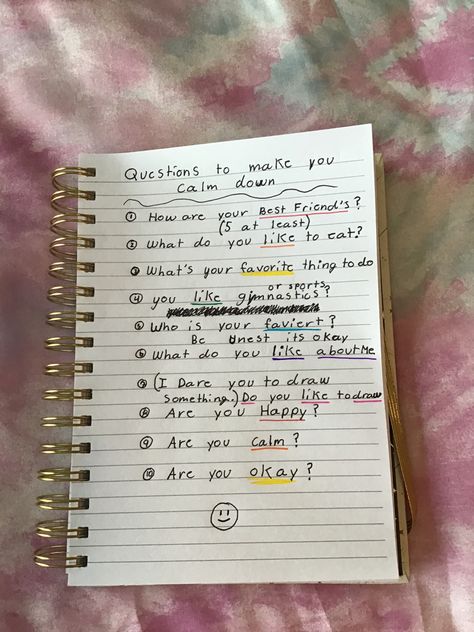 Questions to make you
calm down
① How are your Best Friend's?
(5 at least)
② What do you like to eat?
③ What's your favorite thing to do
or sports
④ you like gimnastics?
⑤ Who is your faviert?
Be Onest its okay
⑥ What do you like about Me
⑦ (I Dare you to draw
something.) Do you like to draw
⑧ Are you Happy?
⑨ Are you calm?
⑩ Are you okay?